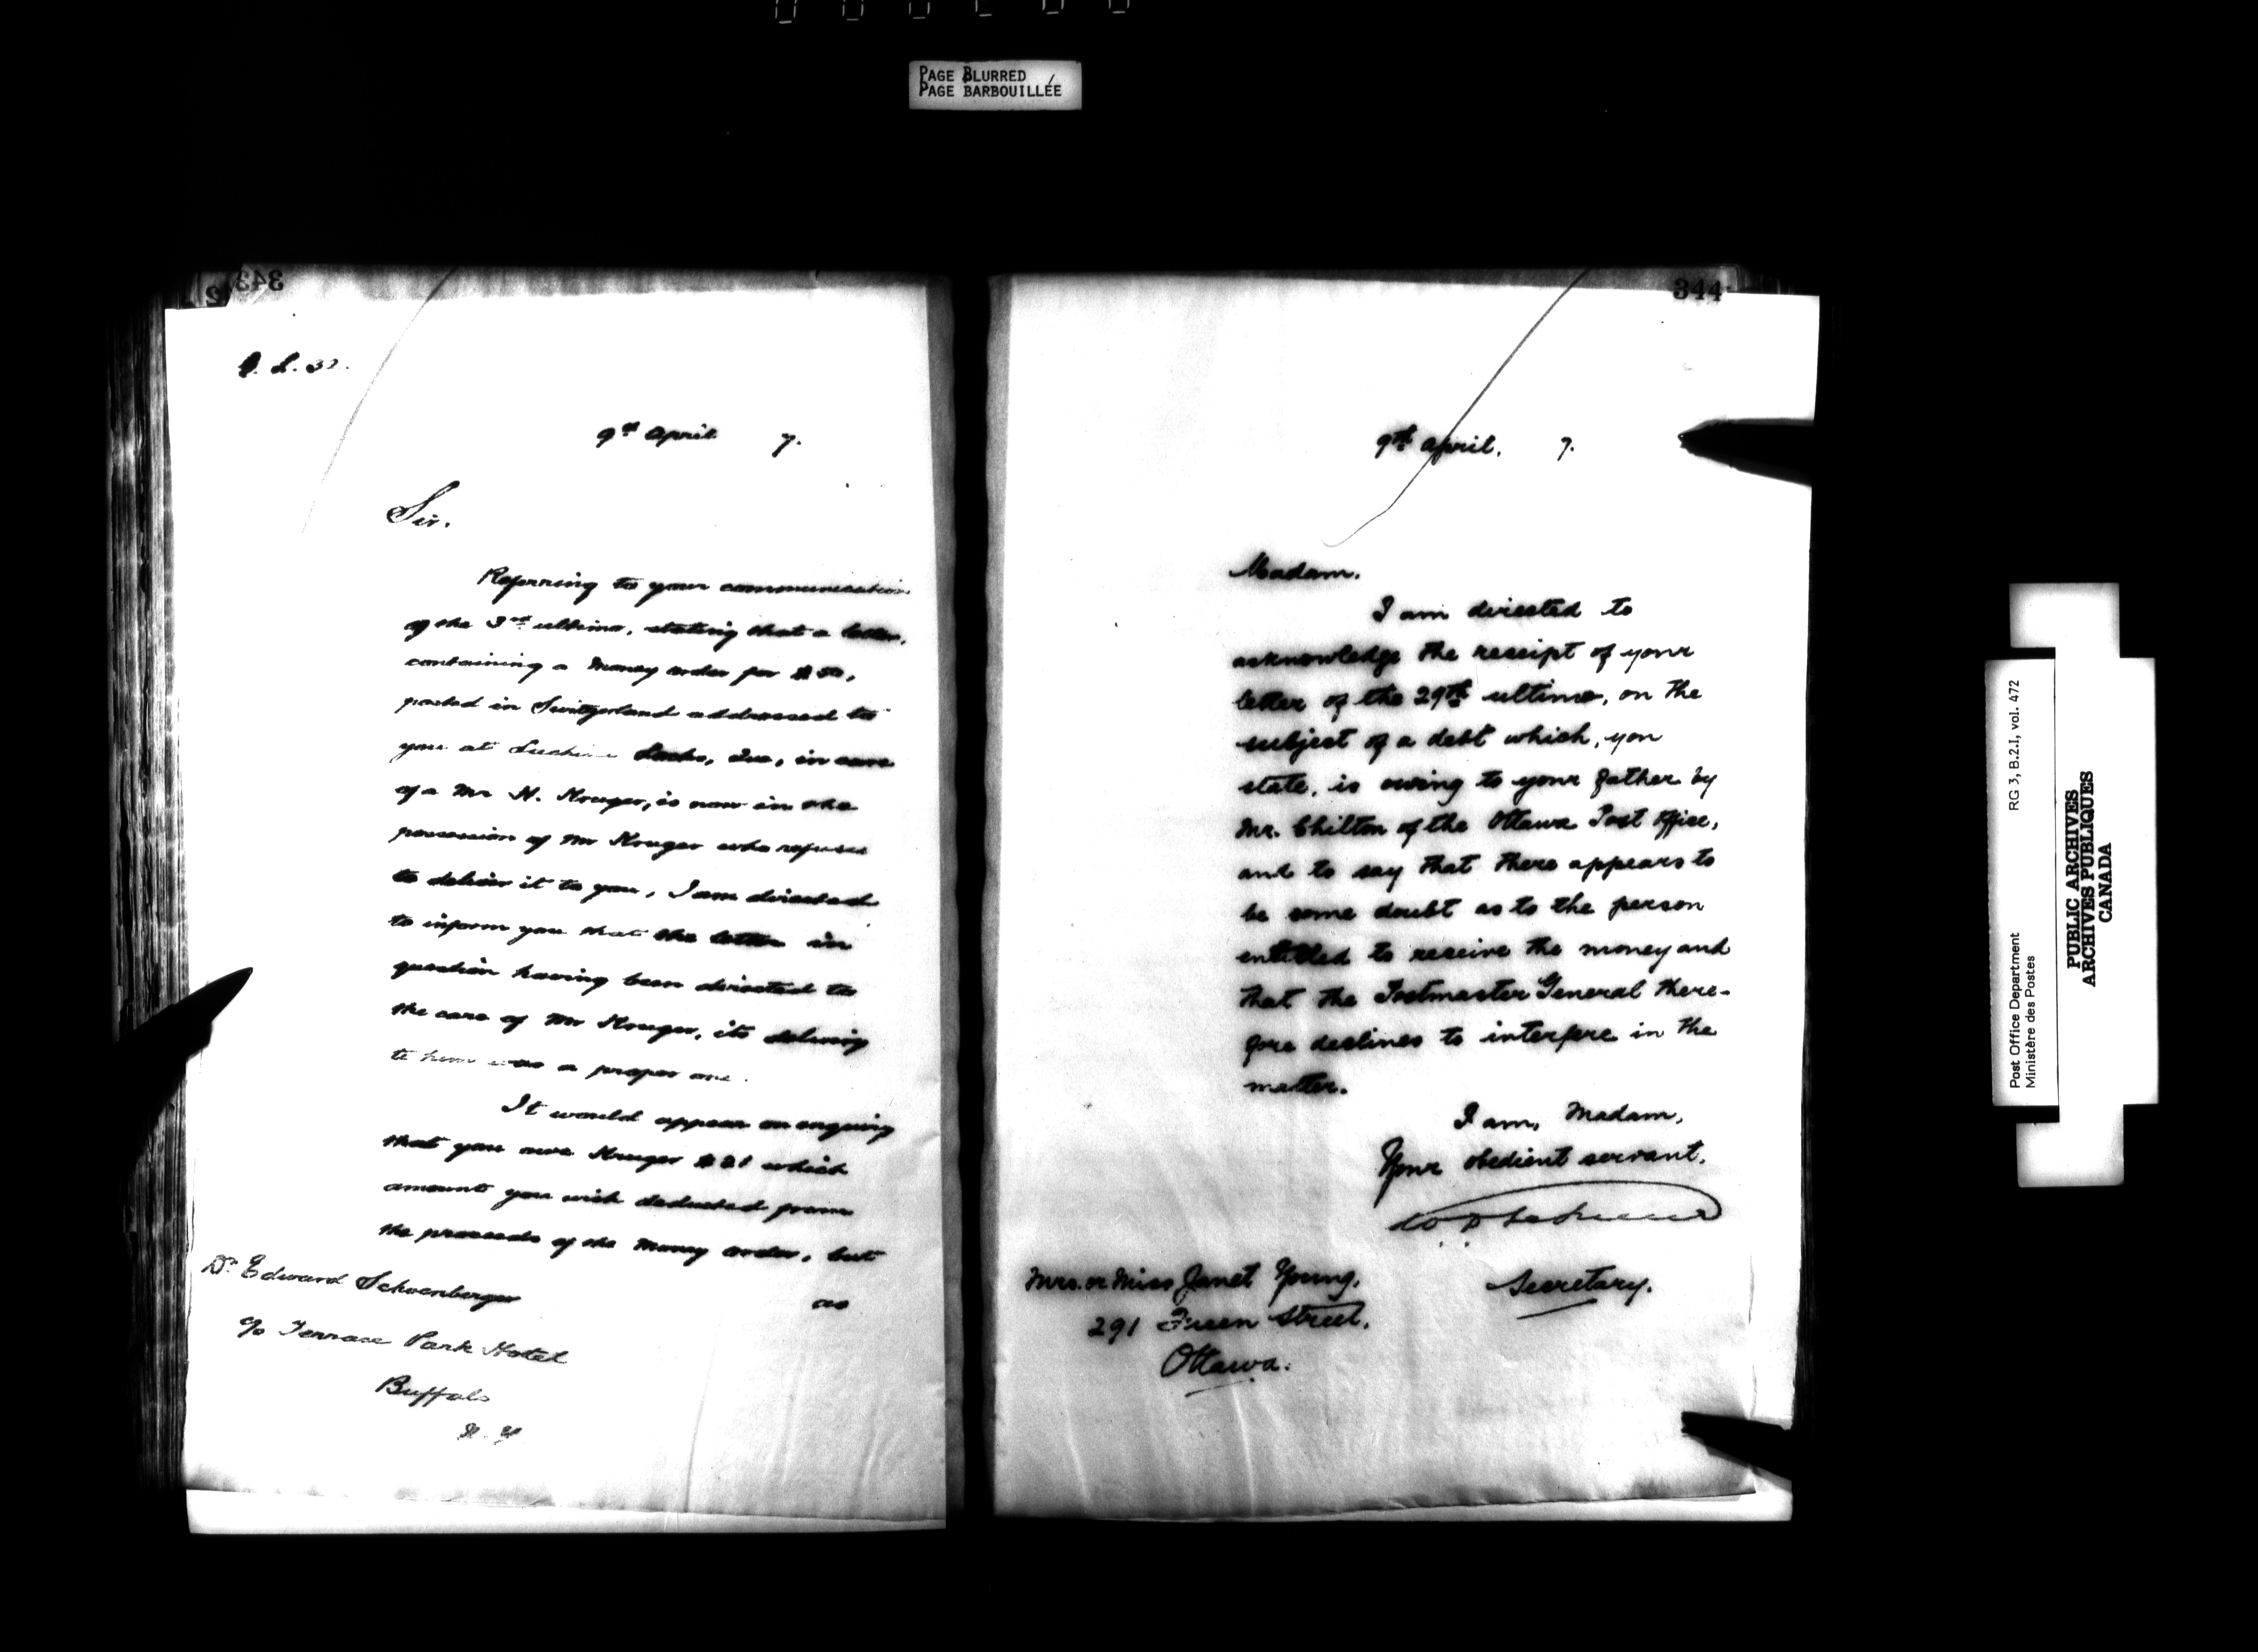 PAGE BLURRED
PAGE BARBOUILLÉE
343
2
L. 32.
9th April 7.
Sir.
Referring to your communication
of the 3rd ultimo, stating that a letter,
containing a money order for $50,
posted in Switzerland addressed to
you at Lachine Locks, Que, in care
of a Mr H. Kruger, is now in the
possession of Mr Kruger who refuses
to deliver it to you, I am directed
to inform you that the letter in
question having been directed to
the care of Mr Kruger, its delivery
to him was a proper one.
It would appear on enquiry
that you owe Kruger $21 which
amount you wish deducted from
the proceeds of the money order, but
as
Dr. Edward Schoenberger
c/o Terrace Park Hotel
Buffalo
N.Y
344
9th April, 7.
Madam.
I am directed to
acknowledge the receipt of your
letter of the 29th ultimo, on the
subject of a debt which, you
state, is owing to your father by
Mr. Chilton of the Ottawa Post Office,
and to say that there appears to
be some doubt as to the person
entitled to receive the money and
that the Postmaster General there-
fore declines to interfere in the
matter.
I am, Madam,
Your obedient servant,
Secretary.
Mrs. or Miss Janet Young,
291 Street,
Ottawa.
Post Office Department RG 3, B.2.I, vol. 472
Ministère des Postes
PUBLIC ARCHIVES
ARCHIVES PUBLIQUES
CANADA